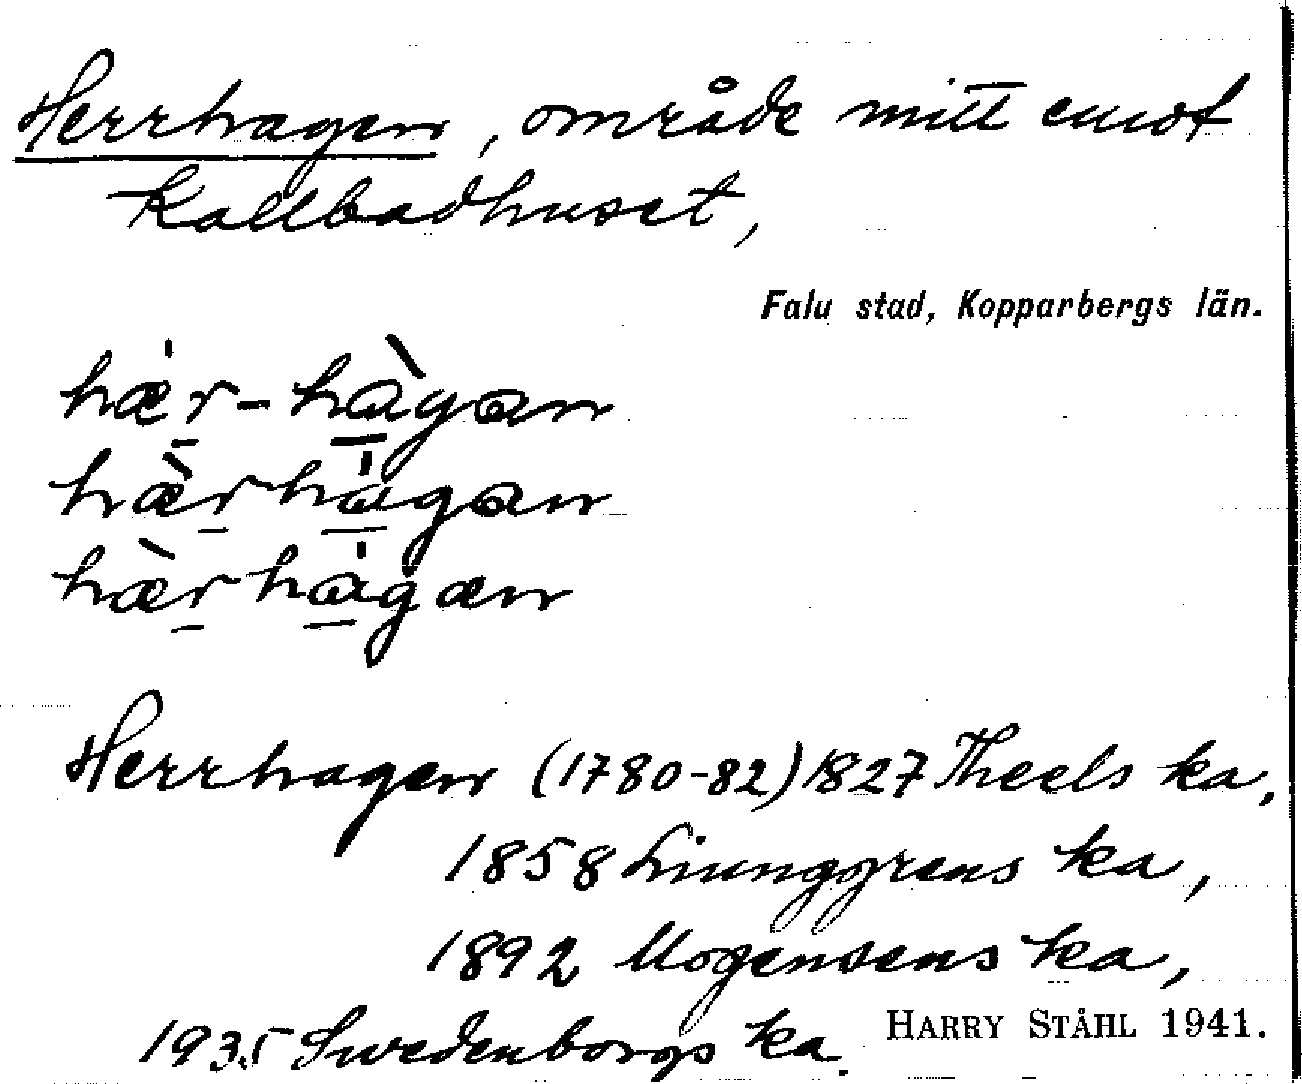 Herrhagen, område mitt emot
Kallbadhuset,
Falu stad, Kopparbergs län.
hær-hàgan
hæ̀rhagan
hæ̀rhagæn
Herrhagen (1780-82) 1827 Theels ka,
1858 Liunggrens ka,
1892 Mogensens ka,
1935 Swedenborgs ka.
HARRY STÅHL 1941.